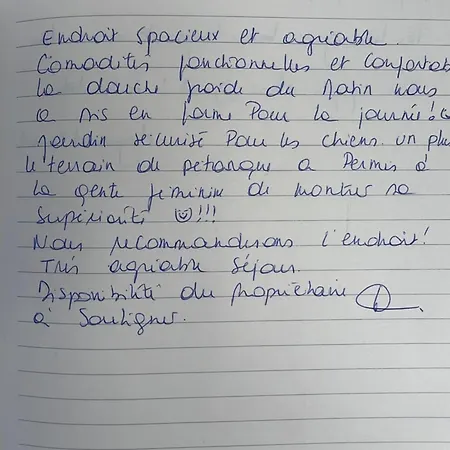 Endroit spacieux et agréable.
Comodités fonctionnelles et confortab
La douche froide du matin nous
a mis en forme Pour la journée!
Jardin sécurisé Pour les chiens. un plus
le terrain de pétanque a Permis à
la gente féminine de montrer sa
supériorité !!!
Nous recommandons l'endroit!
Très agréable séjour.
Disponibilité du propriétaire
à souligner.